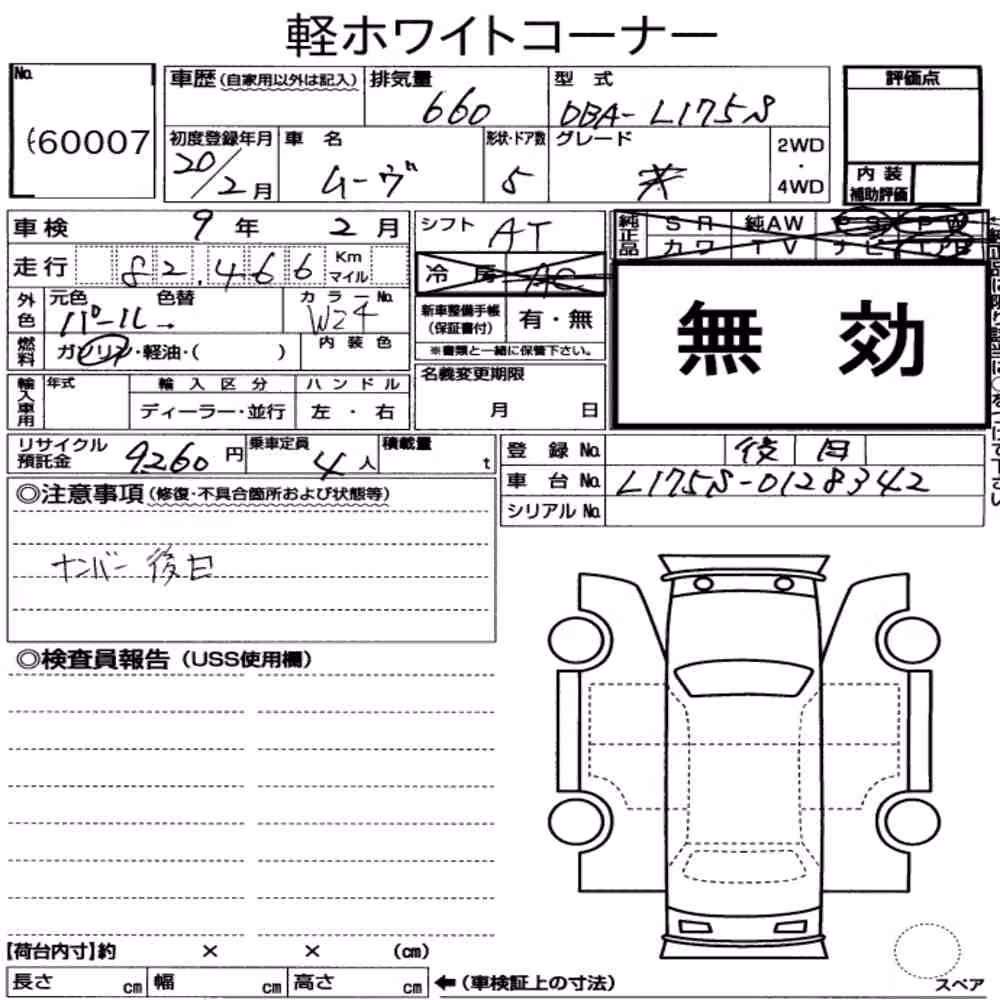 軽ホワイトコーナー
No. 60007
車歴(自家用以外は記入) 排気量 660 型式 DBA-L175S 評価点
初度登録年月 20/2月 車名 ムーヴ 形状・ドア数 5 グレード 2WD・4WD
内装補助評価
車検 9年 2月 シフト AT
純正品 SR 純AW PS PW
カワ TV ナビ
走行 82,466 Km マイル 冷房 AC
無効
外色 元色 パール 色替 カラーNo. W24 新車整備手帳(保証書付) 有・無
内装色
燃料 ガソリン・軽油・( ) ※書類と一緒に保管下さい。
輸入車用 年式 輸入区分 ハンドル 名義変更期限
ディーラー・並行 左・右 月 日
リサイクル預託金 9260円 乗車定員 4人 積載量 t
登録No. 後日
車台No. L175S-0128342
シリアルNo.
◎注意事項(修復・不具合箇所および状態等)
ナンバー後日
◎検査員報告(USS使用欄)
【荷台内寸】約 × × (cm)
長さ cm 幅 cm 高さ cm ←(車検証上の寸法)
スペア